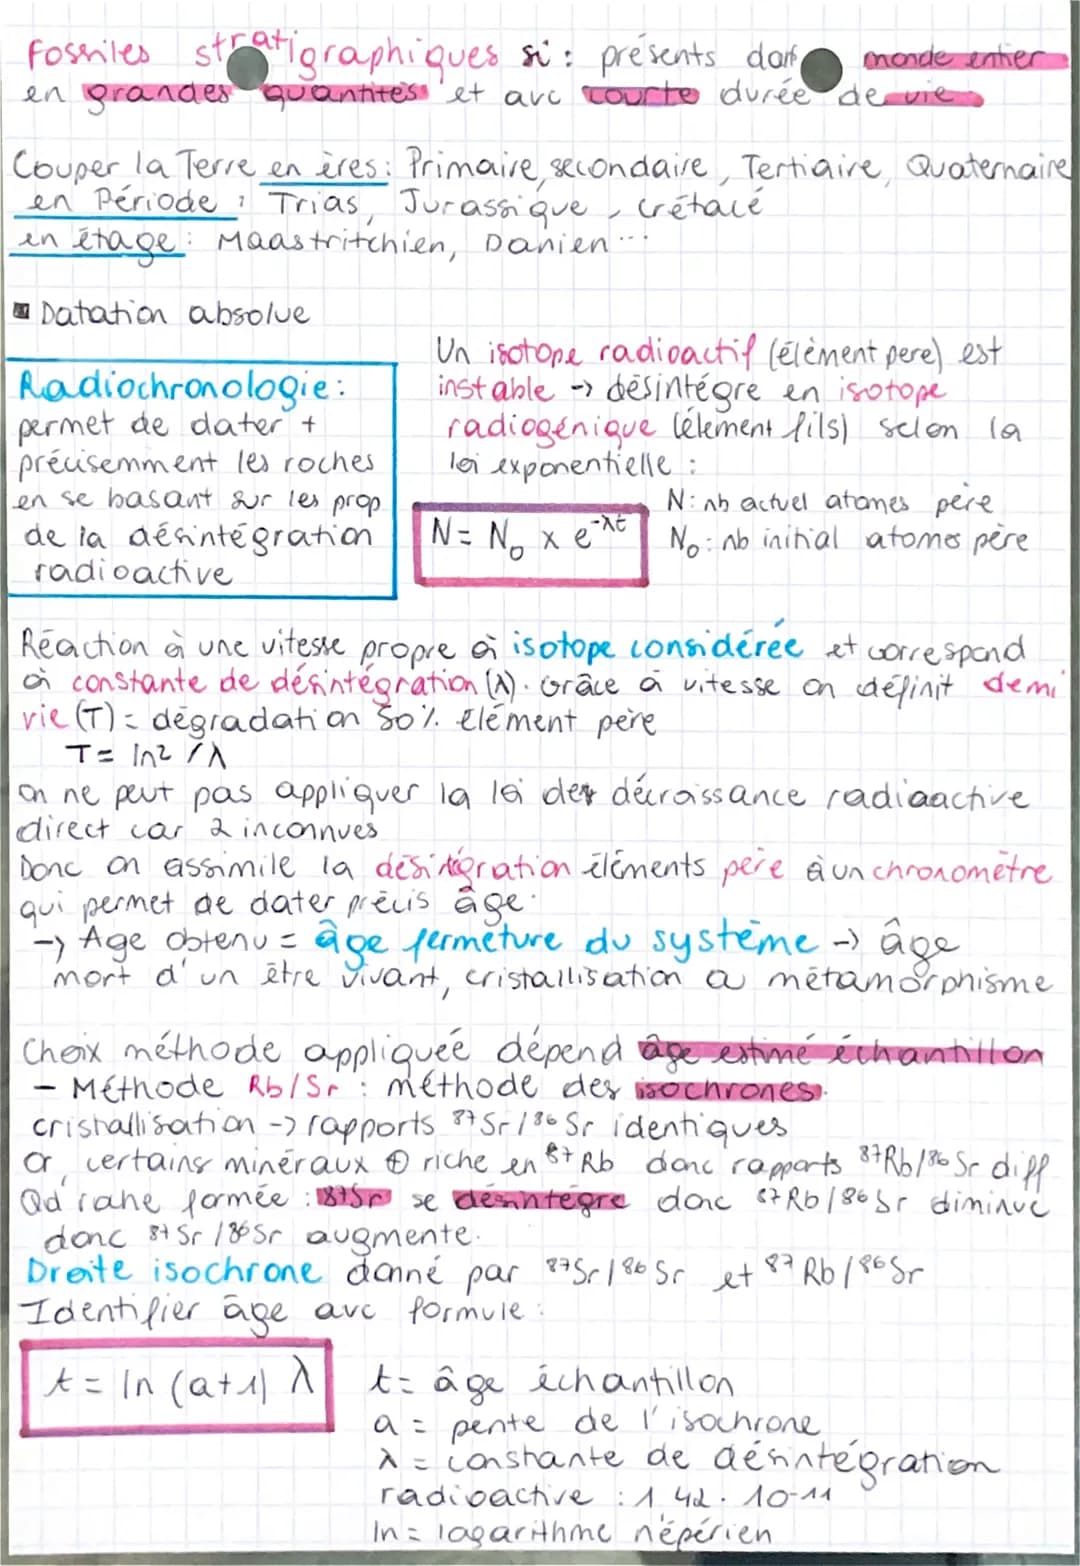 Fossiles stratigraphiques si : présents dans monde entier
en grandes quantités et avc courte durée de vie
Couper la Terre en ères : Primaire, secondaire, Tertiaire, Quaternaire
en Période : Trias, Jurassique, crétacé
en étage : Maastritchien, Danien...
Datation absolue
Radiochronologie :
permet de dater +
précisemment les roches
en se basant sur les prop
de la désintégration
radioactive
Un isotope radioactif (élément pere) est
instable -> désintégre en isotope
radiogénique (élement fils) selon la
loi exponentielle :
N = N₀ x e^-λt
N : nb actuel atomes père
N₀ : nb initial atomes père
Réaction à une vitesse propre à isotope considérée et correspond
à constante de désintégration (λ). Grâce à vitesse on définit demi
vie (T) = dégradation 50% élément père
T = ln2 / λ
on ne peut pas appliquer la loi des décroissance radioactive
direct car 2 inconnues
Donc on assimile la désintégration éléments père à un chronomètre
qui permet de dater précis âge.
-> Age obtenu = âge fermeture du système -> âge
mort d'un être vivant, cristallisation ou métamorphisme
Choix méthode appliquée dépend âge estimé échantillon
- Méthode Rb/Sr : méthode des isochrones.
cristallisation -> rapports ⁸⁷Sr/⁸⁶Sr identiques
Or, certains minéraux ⊕ riche en ⁸⁷Rb donc rapports ⁸⁷Rb/⁸⁶Sr diff
Qd roche formée : 87Sr se désintègre donc ⁸⁷Rb/⁸⁶Sr diminue
donc ⁸⁷Sr/⁸⁶Sr augmente.
Droite isochrone donné par ⁸⁷Sr/⁸⁶Sr et ⁸⁷Rb/⁸⁶Sr
Identifier âge avc formule :
t = ln (a+1) λ
t = âge échantillon
a = pente de l'isochrone
λ = constante de désintégration
radioactive : 1.42. 10-11
ln = logarithme népérien